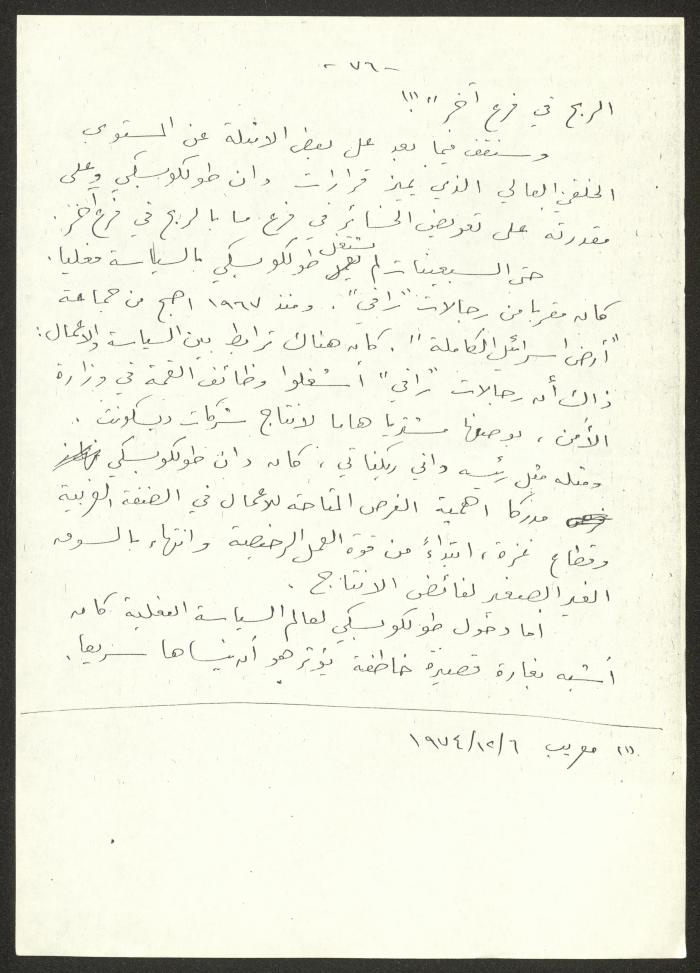 -٧٦-
الربح في فرع آخر" (١)
وسنقف فيما بعد على بعض الامثلة عن المستوى
الخلقي العالي الذي يميز قرارات دان طولكوبسكي وعلى
مقدرته على تعويض الخسائر في فرع ما بالربح في فرع آخر.
حتى السبعينات لم يشتغل طولكوبسكي بالسياسة فعليا.
كان مقربا من رجالات "رافي". ومنذ ١٩٦٧ اصبح من جماعة
"أرض اسرائيل الكاملة". كان هناك ترابط بين السياسة والاعمال:
ذاك أن رجالات "رافي" أشغلوا وظائف القمة في وزارة
الأمن، بوصفها مشتريا هاما لانتاج شركات ديسكونت.
ومثله مثل رئيسه داني ريكناتي، كان دان طولكوبسكي
مدركا اهمية الفرص المتاحة للاعمال في الضفة الغربية
وقطاع غزة، ابتداءً من قوة العمل الرخيصة وانتهاء بالسوق
الغير الصغير لفائض الانتاج.
أما دخول طولكوبسكي لعالم السياسة الفعلية كان
أشبه بغارة قصيرة خاطفة يؤثر هو أن ينساها سريعا.
(١) معريب ١٩٧٤/١٢/٦